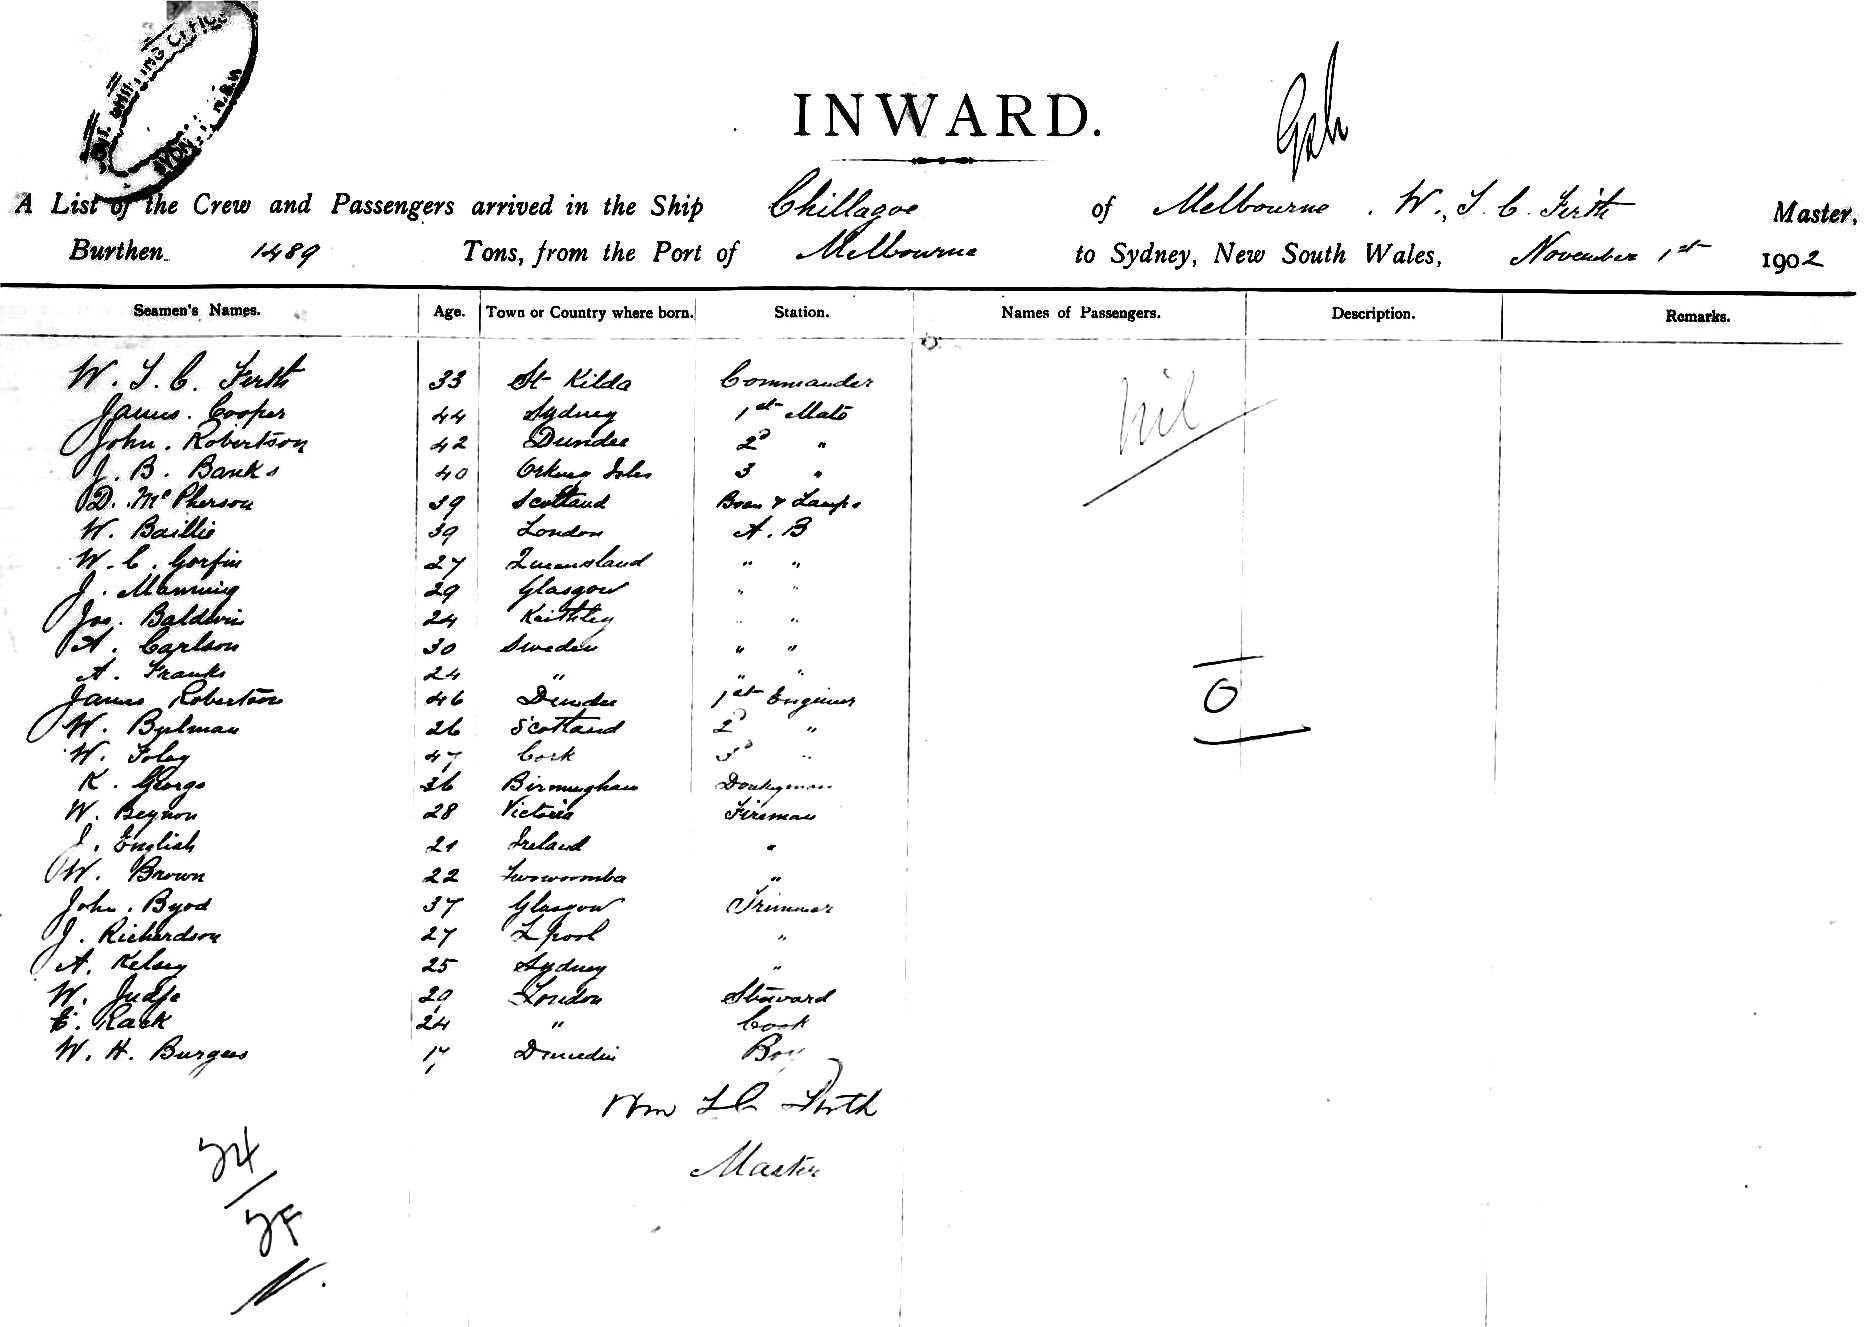 INWARD.
A List of the Crew and Passengers arrived in the Ship Chillagoe of Melbourne. W. T. C. Firth Master,
Burthen 1489 Tons, from the Port of Melbourne to Sydney, New South Wales, November 1st 1902
Seamen's Names. Age. Town or Country where born. Station. Names of Passengers. Description. Remarks.
W. T. C. Firth 33 St Kilda Commander nil
James. Cooper 44 Sydney 1st Mate
John. Robertson 42 Dundee 2d "
J. B. Banks 40 Orkney Isles 3 "
D. McPherson 39 Scotland Bosn & Lamps
W. Baillie 39 London A. B
W. C. Gorfin 27 Queensland " "
J. Manning 29 Glasgow " "
Jos. Baldwin 24 Keithley " "
A. Carlson 30 Sweden " "
A. Franks 24 " " "
James Robertson 46 Dundee 1st Engineer 0
W. Bulman 26 Scotland 2d "
W. Foley 47 Cork 3d "
K. George 36 Birmingham Donkeyman
W. Beynon 28 Victoria Fireman
J. English 21 Ireland "
W. Brown 22 Toowoomba "
John. Byod 37 Glasgow Trimmer
J. Richardson 27 L'pool "
A. Kelsey 25 Sydney "
W. Judge 20 London Steward
E. Rack 24 " Cook
W. H. Burgess 17 Dunedin Boy
Wm T C Firth
Master
24